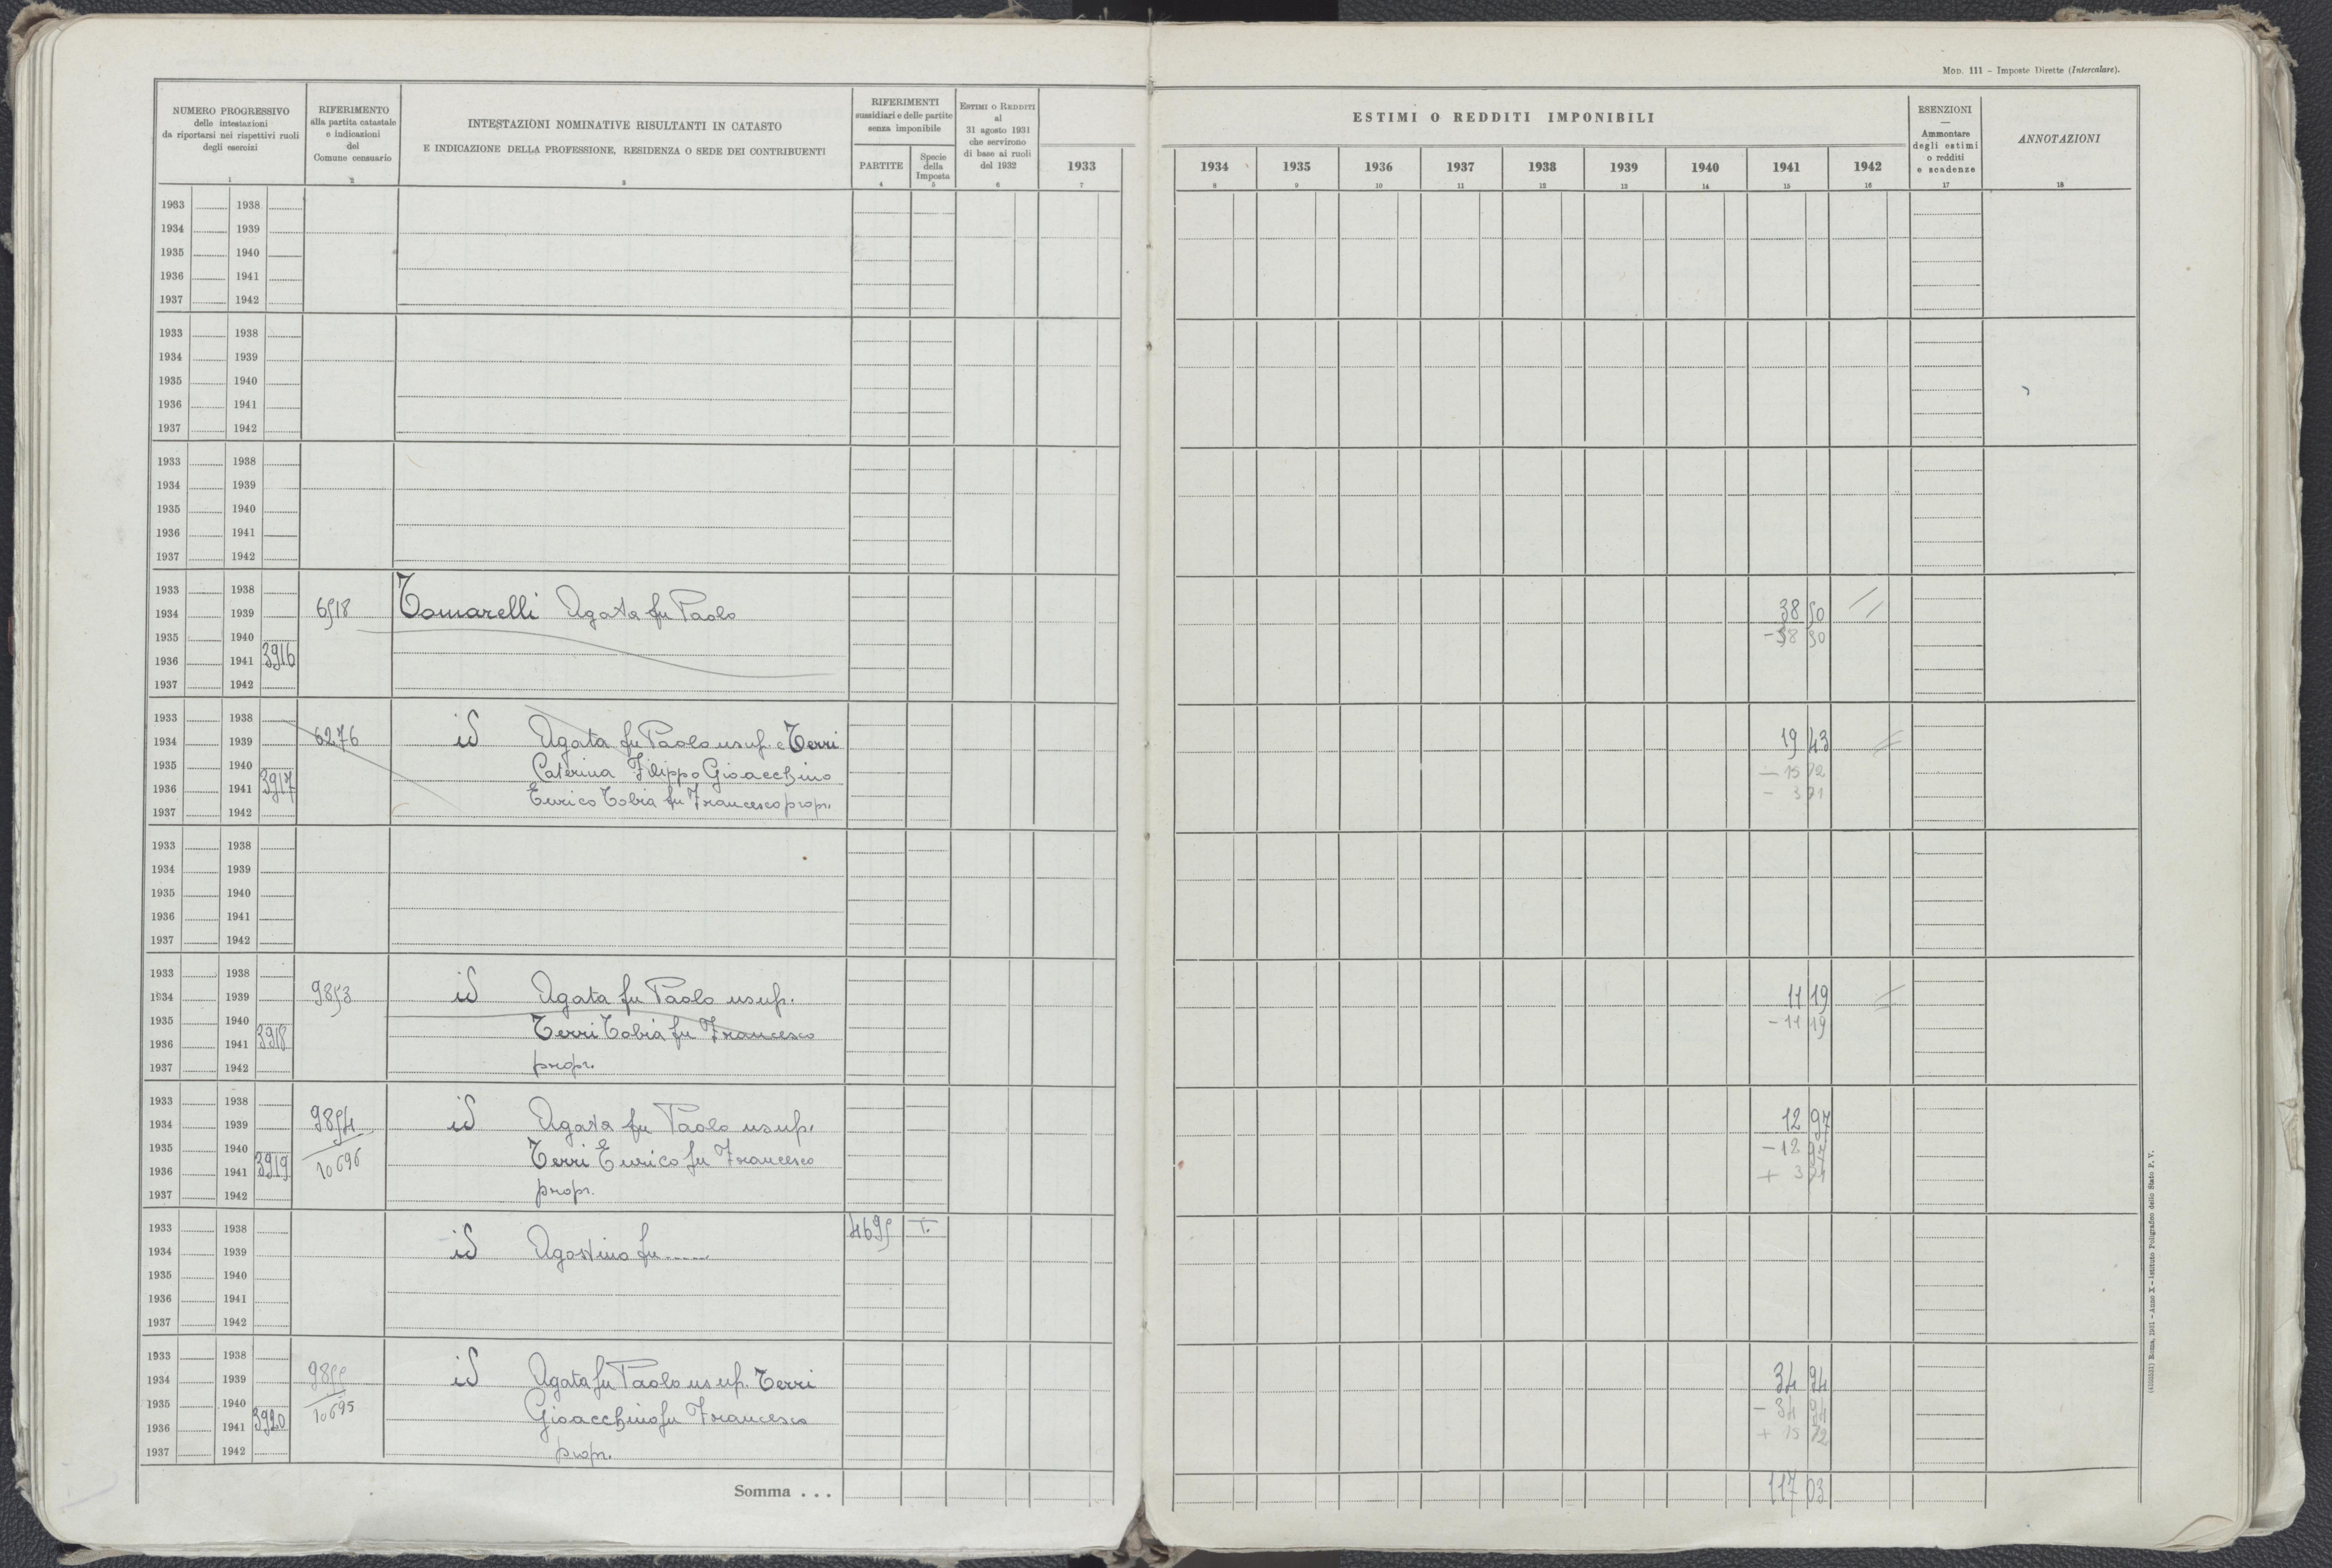 Mod. 111 – Imposte Dirette (Intercalare).
NUMERO PROGRESSIVO
delle intestazioni
da riportarsi nei rispettivi ruoli
degli esercizi
1
RIFERIMENTO
alla partita catastale
e indicazioni
del
Comune censuario
2
INTESTAZIONI NOMINATIVE RISULTANTI IN CATASTO
E INDICAZIONE DELLA PROFESSIONE, RESIDENZA O SEDE DEI CONTRIBUENTI
3
RIFERIMENTI
sussidiari e delle partite
senza imponibile
PARTITE
4
Specie
della
Imposta
5
Estimi o Redditi
al
31 agosto 1931
che servirono
di base ai ruoli
del 1932
6
ESTIMI O REDDITI IMPONIBILI
1933 1934 1935 1936 1937 1938 1939 1940 1941 1942
7 8 9 10 11 12 13 14 15 16
ESENZIONI
—
Ammontare
degli estimi
o redditi
e scadenze
17
ANNOTAZIONI
18
1933 1938
1934 1939
1935 1940
1936 1941
1937 1942
1933 1938
1934 1939
1935 1940
1936 1941
1937 1942
1933 1938
1934 1939
1935 1940
1936 1941
1937 1942
1933 1938
1934 1939 6518 Tomarelli Agata fu Paolo 38 50
1935 1940 -38 50
1936 1941 3916
1937 1942
1933 1938
1934 1939 6276 id Agata fu Paolo usuf. e Terri 19 43
1935 1940 Caterina Filippo Gioacchino — 15 72
1936 1941 3917 Enrico Tobia fu Francesco propr. - 3 71
1937 1942
1933 1938
1934 1939
1935 1940
1936 1941
1937 1942
1933 1938
1934 1939 9853 id Agata fu Paolo usuf. 11 19
1935 1940 Terri Tobia fu Francesco - 11 19
1936 1941 3918
1937 1942 propr.
1933 1938
1934 1939 9854 id Agata fu Paolo usuf. 12 97
1935 1940 Terri Enrico fu Francesco - 12 97
1936 1941 3919 10696 + 3 71
1937 1942 propr.
1933 1938 4695 T.
1934 1939 id Agostino fu ......
1935 1940
1936 1941
1937 1942
1933 1938
1934 1939 9855 id Agata fu Paolo usuf. Terri 34 94
1935 1940 10695 Gioacchino fu Francesco - 34 94
1936 1941 3920 + 15 72
1937 1942 propr.
Somma . . . 117 03
(4100531) Roma, 1931 – Anno X – Istituto Poligrafico dello Stato P. V.